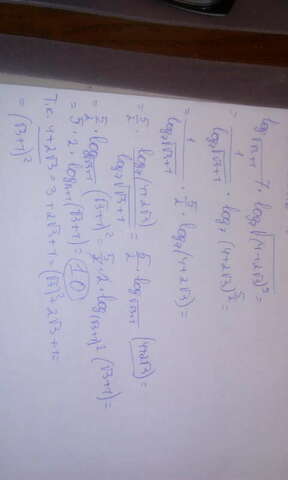 log_{√(√3+1)} 7 · log_7 √((4+2√3)^5) =
= 1/(log_7 √(√3+1)) · log_7 (4+2√3)^{5/2} =
= 1/(log_7 √(√3+1)) · 5/2 · log_7 (4+2√3) =
= 5/2 · (log_7 (4+2√3))/(log_7 √(√3+1)) = 5/2 · log_{√(√3+1)} (4+2√3) =
= 5/2 · log_{√(√3+1)} (√3+1)^2 = 5/2 · 2 · log_{(√3+1)^{1/2}} (√3+1) =
= 5 · 2 · log_{√3+1} (√3+1) = 10
Т.к. 4+2√3 = 3+2√3+1 = (√3)^2+2√3+1 =
= (√3+1)^2